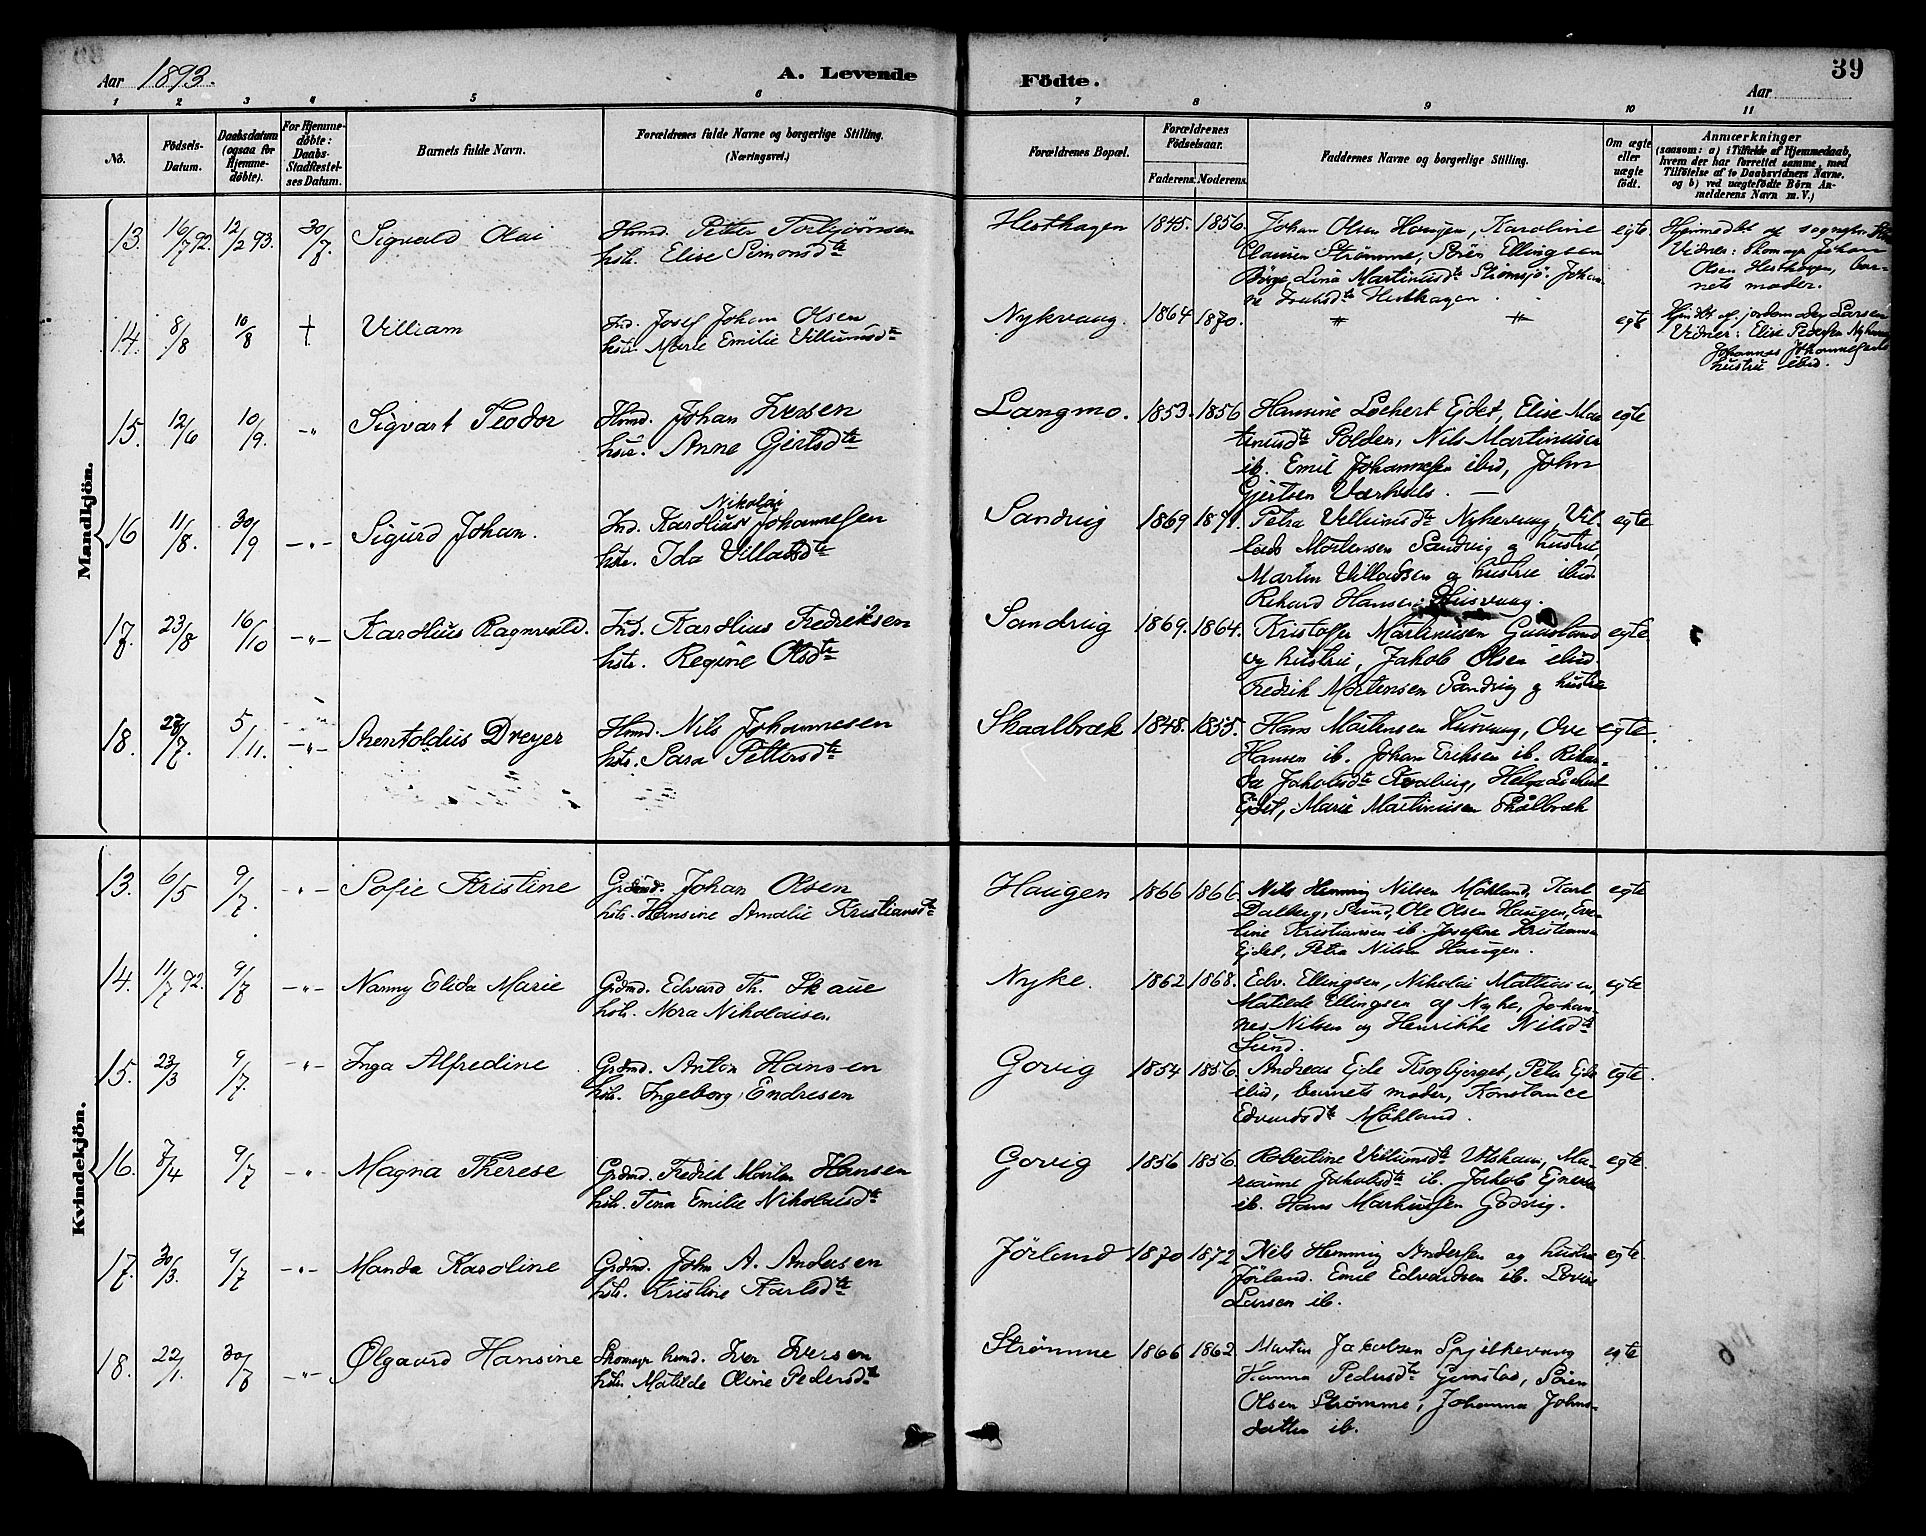 Aar 1893.
A. Levende Födte.
39
Aar
1 2 3 4 5 6 7 8 9 10 11
No.
Födsels-Datum.
Daabsdatum (ogsaa for Hjemme-døbte).
For Hjemme-døbte: Daabs-Stadfæstel-ses Datum.
Barnets fulde Navn.
Forældrenes fulde Navne og borgerlige Stilling. (Næringsvei.)
Forældrenes Bopæl.
Forældrenes Födselsaar.
Faderens. Moderens.
Faddernes Navne og borgerlige Stilling.
Om ægte eller uægte født.
Anmærkninger
(saasom: a) i Tilfælde af Hjemmedaab, hvem der har forrettet samme, med Tilføielse af to Daabsvidners Navne, og b) ved uægtefødte Börn An-melderens Navn m. V.)
Mandkjön.
13. 16/7 92. 12/2 93. 30/7. Sigvald Olai
Hmd. Petter Torbjörnsen
hstr. Elise Simonsdtr
Hesthagen 1845. 1856.
Johan Olsen Haugen, Karoline
Clausen Strømme, Sören Ellingsen
Börge, Lina Martinusdtr Strömsjö. Johan-
Hesthagen
egte.
Vidner: Johan
Olsen Hesthagen, bar-
nets moder.
14. 8/8 10/8 † Villiam
Ind. Josef Johan Olsen
hstr. Marie Emilie Villumsdtr
Nykvaag. 1864 1870. " " egte
Hjdbt af jordem. Larsen
Vidner: Elise Pedersen Nykvaag
hustru ibid.
15. 12/6 10/9. -"- Sigvart Teodor
Hmd. Johan Iversen
hstr. Anne Gjertsdtr
Langmo. 1853. 1856
Hansine Lochert Ejdet, Elise Mar-
tinusdtr Polden, Nils Martinusen
ib. Emil Johannesen ibid, John
Gjertsen Værhals.
egte
16 11/8. 30/9 -"- Sigurd Johan.
Nikolai
Ind. Karolius Johannesen
hstr. Ida Villadsdtr
Sandvig 1869 1871.
Petra Villumsdtr Nykvaag, Vil-
lads Mortensen Sandvig og hustru,
Martin Villadsen og hustru ibid.
Rikard Hansen
egte
17. 23/8 16/10 -"- Karolius Ragnvald.
Ind. Karolius Fredriksen
hstr. Regine Olsdtr
Sandvig 1869. 1864.
Kristoffer Martinusen Guusland
og hustru, Jakob Olsen ibid.
Fredrik Mortensen Sandvig og hustru
egte
18. 28/7 5/11. -"- Arentoldus Dreyer
Hmd. Nils Johannesen
hstr. Sara Pettersdtr
Skaalbræk 1848. 1855.
Hans Mortensen Ove
Hansen ib. Johan Eriksen ib. Rikar-
da Jakobsdtr Helge Lochert
Ejdet, Marie Martinusen Skålbræk
egte.
Kvindekjön.
13. 6/5 9/7. -"- Sofie Kristine
Grdmd. Johan Olsen
hstr. Hansine Amalie Kristiansdtr
Haugen 1866 1866.
Nils Hemming Nilsen Mökland, Karl
Dalberg, Sund, Ole Olsen Haugen, Eve-
line Kristiansen ib. Josefine Kristiansen
Ejdet, Petra Nilsen Haugen.
egte
14. 11/7 92. 9/7 -"- Nanny Elida Marie
Grdmd. Edvard Th. Skaue
hstr. Nora Nikolaisen
Nyke. 1862 1868.
Edv. Ellingsen, Nikolai Mathiasen,
Matilde Ellingsen af Nyke, Johan-
nes Nilsen og Henrikke Nilsdtr
Sund.
egte
15. 23/3 9/7. -"- Inga Alfredine
Grdmd. Anton Hansen
hstr. Ingeborg Endresen
Govig 1854 1856.
Andreas Ejde Krogbjerget, Peter Ejde
ibid, barnets moder, Konstance
Edvardsdtr Mökland.
egte.
16. 7/4 9/7 -"- Magna Therese
Grdmd. Fredrik Morten Hansen
hstr. Tina Emilie Nikolaisdtr
Govig 1856 1856.
Robertine Villumsdtr Utskam, Ma-
rianne Jakobsdtr ib. Jakob
ib. Hans Markussen Godvig.
egte.
17. 30/3. 9/7 -"- Manda Karoline
Grdmd. John A. Andersen
hstr. Kristine Karlsdtr
Jörland 1870 1872
Nils Hemming Andersen og hustru
Jörland. Emil Edvardsen ib. Lovise
Larsen ib.
egte
18. 22/1. 30/7 -"- Ølgaard Hansine
Skomager hmd. Iver Iversen
hstr. Matilde Oline Pedersdtr
Strømme 1866 1862.
Martin Jakobsen Spjelkevaag
Hanna Pedersdtr Grimstad, Sören
Olsen Strømme, Johanna Johns-
datter ib.
egte